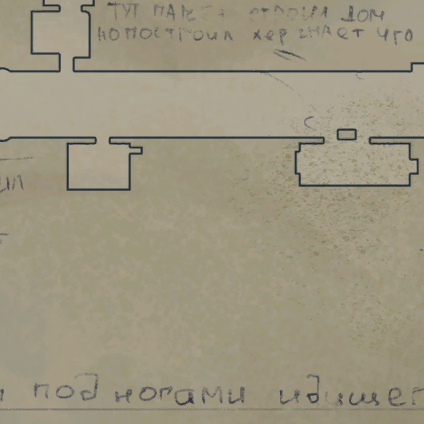 ТУТ ПАКЕТ СТРОИЛ ДОМ
НО ПОСТРОИЛ ХЕР ЗНАЕТ ЧТО
под ногами идищег